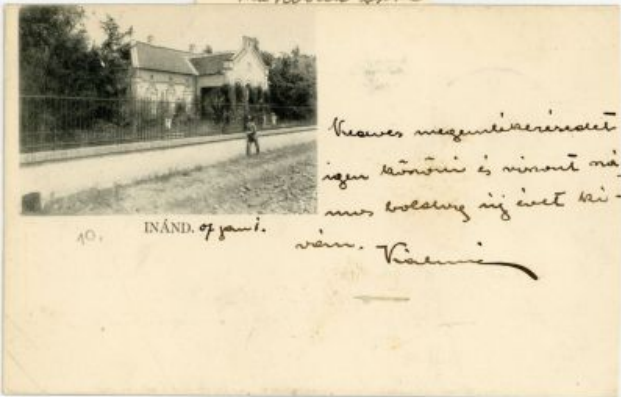 Kedves megemlékezésedet
igen köszöni és viszont szá-
mos boldog új évet ki-
ván. Kálmán
INÁND. 07 jan 1.
10.